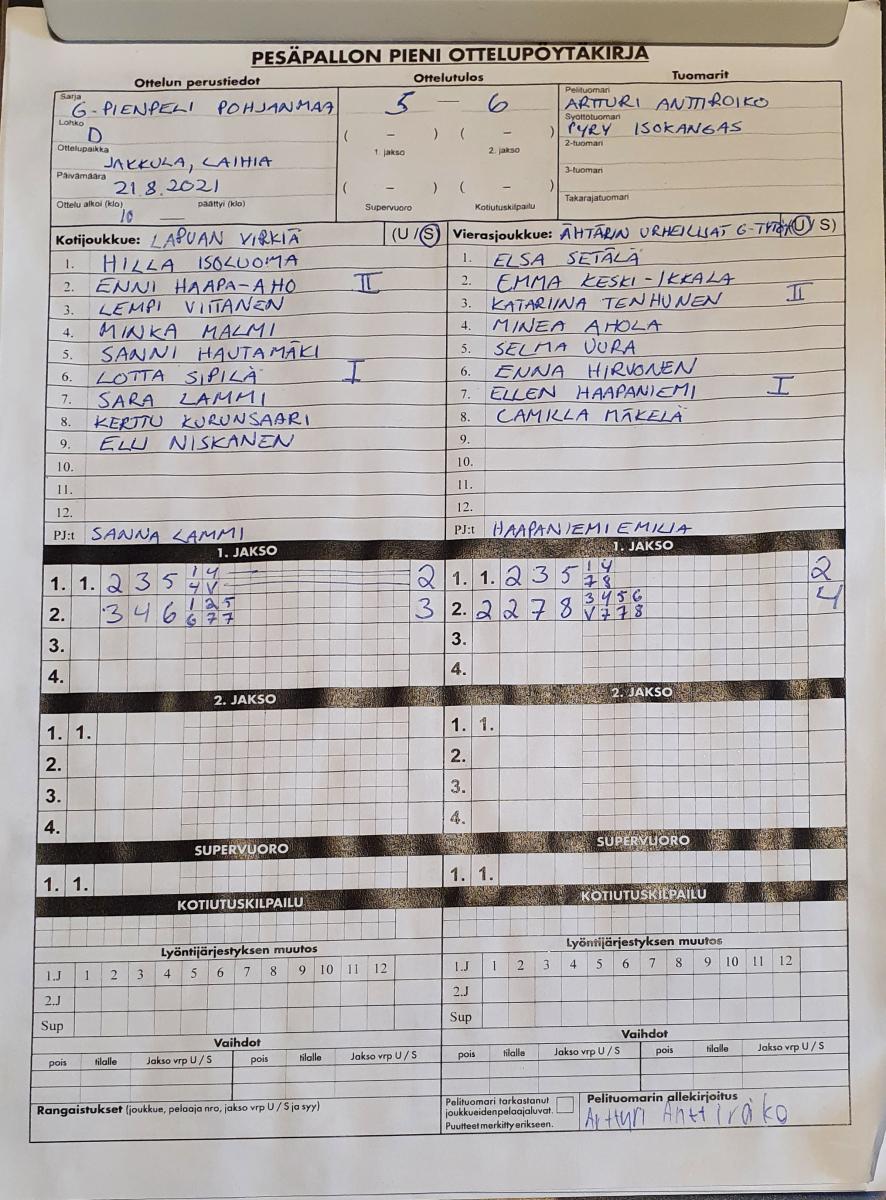 PESÄPALLON PIENI OTTELUPÖYTÄKIRJA
Ottelun perustiedot Ottelutulos Tuomarit
Sarja G-PIENPELI POHJANMAA
Lohko D
Ottelupaikka JAKKULA, LAIHIA
Päivämäärä 21.8.2021
Ottelu alkoi (klo) päättyi (klo)
10 —
5 — 6
( – ) ( – )
1. jakso 2. jakso
( – ) ( – )
Supervuoro Kotiutuskilpailu
Pelituomari
ARTTURI ANTTIROIKO
Syöttötuomari
PYRY ISOKANGAS
2-tuomari
3-tuomari
Takarajatuomari
Kotijoukkue: LAPUAN VIRKIÄ (U / S)
1. HILLA ISOLUOMA
2. ENNI HAAPA-AHO II
3. LEMPI VIITANEN
4. MINKA MALMI
5. SANNI HAUTAMÄKI
6. LOTTA SIPILÄ I
7. SARA LAMMI
8. KERTTU KURUNSAARI
9. ELLI NISKANEN
10.
11.
12.
PJ:t SANNA LAMMI
Vierasjoukkue: ÄHTÄRIN URHEILIJAT G-TYTÖT (U / S)
1. ELSA SETÄLÄ
2. EMMA KESKI-IKKALA
3. KATARIINA TENHUNEN II
4. MINEA AHOLA
5. SELMA UURA
6. ENNA HIRVONEN
7. ELLEN HAAPANIEMI I
8. CAMILLA MÄKELÄ
9.
10.
11.
12.
PJ:t HAAPANIEMI EMILIA
1. JAKSO 1. JAKSO
1. 1. 2 3 5 1 4 2
4 V
2. 3 4 6 1 2 5 3
6 7 7
3.
4.
1. 1. 2 3 5 1 4 2
7 8
2. 2 2 7 8 3 4 5 6 4
V 7 7 8
3.
4.
2. JAKSO 2. JAKSO
1. 1.
2.
3.
4.
1. 1.
2.
3.
4.
SUPERVUORO SUPERVUORO
1. 1. 1. 1.
KOTIUTUSKILPAILU KOTIUTUSKILPAILU
Lyöntijärjestyksen muutos Lyöntijärjestyksen muutos
1.J 1 2 3 4 5 6 7 8 9 10 11 12 1.J 1 2 3 4 5 6 7 8 9 10 11 12
2.J 2.J
Sup Sup
Vaihdot Vaihdot
pois tilalle Jakso vrp U / S pois tilalle Jakso vrp U / S pois tilalle Jakso vrp U / S pois tilalle Jakso vrp U / S
Rangaistukset (joukkue, pelaaja nro, jakso vrp U / S ja syy)
Pelituomari tarkastanut
joukkueiden pelaajaluvat.
Puutteet merkitty erikseen.
Pelituomarin allekirjoitus
Artturi Anttiroiko